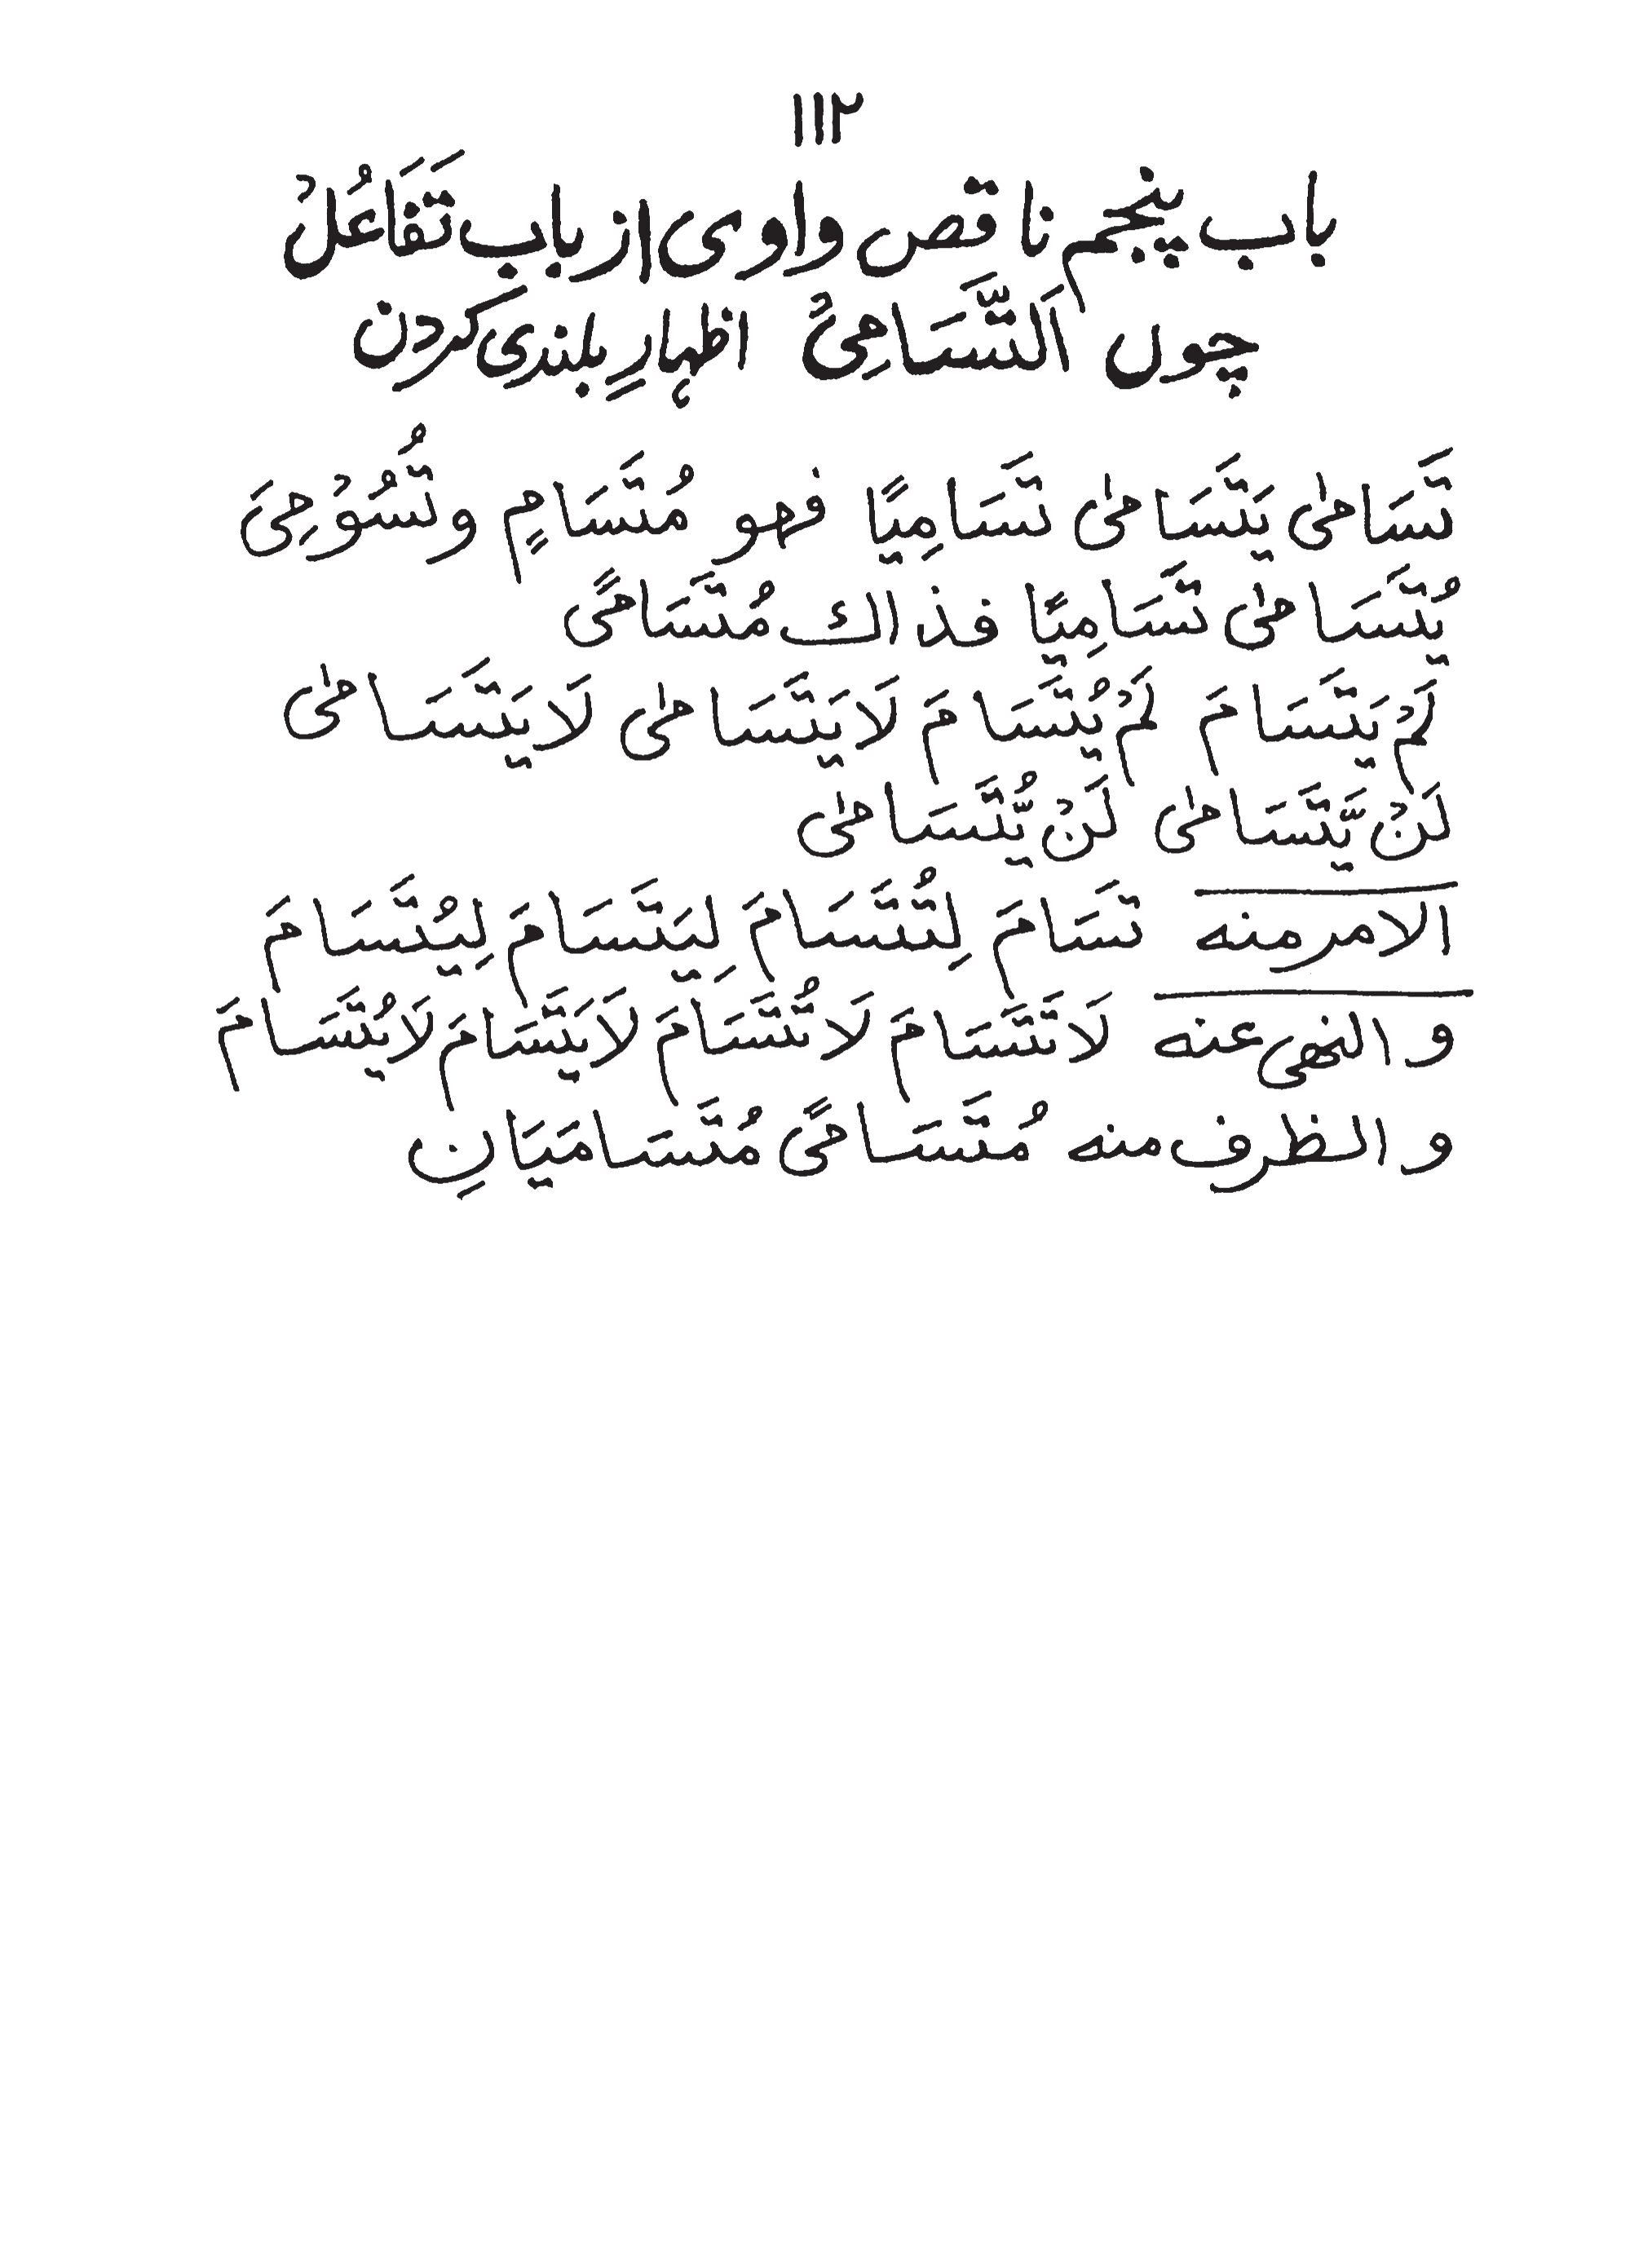 ۱۱۲
باب پنجم ناقص واوی از باب تَفَاعُلْ
چوں اَلتَّسَامِیْ اظہارِ بلندی کردن
تَسَامٰی يَتَسَامٰی تَسَامِيًا فهو مُتَسَامٍ وتُسُوْمِیَ
يُتَسَامٰی تَسَامِيًا فذاك مُتَسَامًی
لَمْ يَتَسَامَ لَمْ يُتَسَامَ لَا يَتَسَامٰی لَا يَتَسَامٰی
لَنْ يَّتَسَامٰی لَنْ يُّتَسَامٰی
الامرمنه تَسَامَ لِتُتَسَامَ لِيَتَسَامَ لِيُتَسَامَ
و النهی عنه لَا تَتَسَامَ لَا تُتَسَامَ لَا يَتَسَامَ لَا يُتَسَامَ
و الظرف منه مُتَسَامًی مُتَسَامَيَانِ